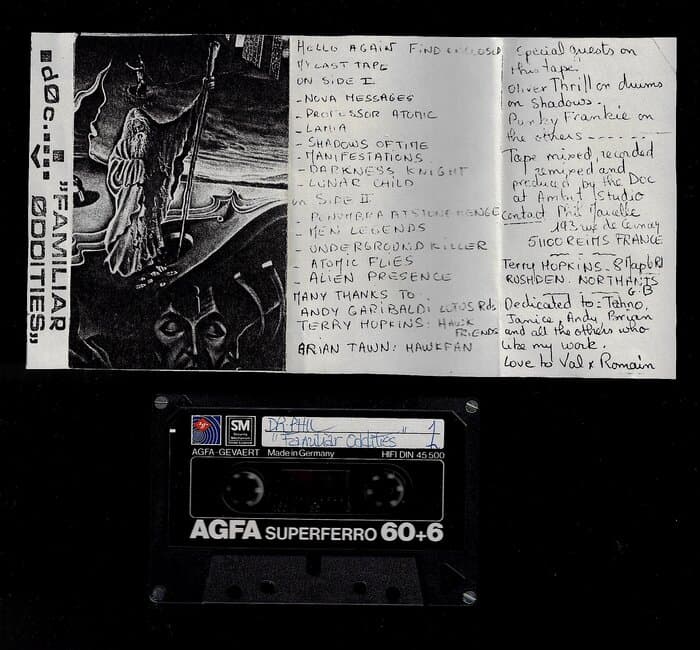 .dØc.
"FAMILIAR
ØDDITIES"
HELLO AGAIN FIND ENCLOSED
MY LAST TAPE
ON SIDE I
- NOVA MESSAGES
- PROFESSOR ATOMIC
- LAMIA
- SHADOWS OF TIME
- MANIFESTATIONS
- DARKNESS KNIGHT
- LUNAR CHILD
ON SIDE II
- PENUMBRA AT STONE HENGE
- MEN LEGENDS
- UNDERGROUND KILLER
- ATOMIC FLIES
- ALIEN PRESENCE
MANY THANKS TO
ANDY GARIBALDI LOTUS Rds
TERRY HOPKINS: HAWK
FRIENDS
BRIAN TAWN: HAWKFAN
Special guests on
this tape
Oliver Thrill on drums
on Shadows.
Punky Frankie on
the others
Tape mixed, recorded
remixed and
produced by the Doc
at Studio
Contact Phil
193 rue de Cernay
51100 REIMS FRANCE
Terry HOPKINS. 8
RUSHDEN. NORTHANTS
G.B
Dedicated to: Tehno,
Janice, Andy, Bryan
and all the others who
like my work.
Love to Val x Romain
SM
DR PHIL
"Familiar Oddities"
1
AGFA-GEVAERT Made in Germany HIFI DIN 45 500
AGFA SUPERFERRO 60+6